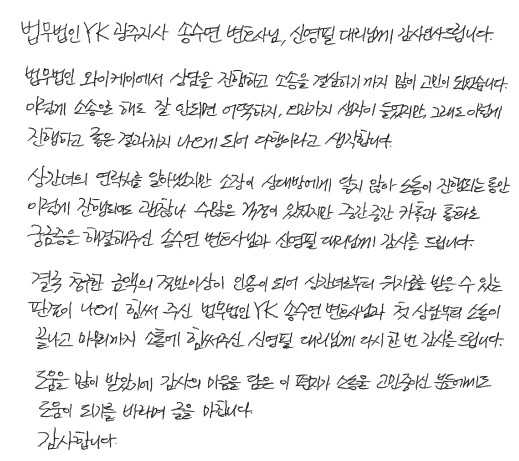 법무법인 YK 광주지사 송수연 변호사님, 신영필 대리님께 감사인사드립니다.
법무법인 와이케이에서 상담을 진행하고 소송을 결심하기까지 많이 고민이 되었습니다.
이렇게 소송을 해도 잘 안되면 어떡하지, 만만가지 생각이 들었지만, 그래도 이렇게
진행하고 좋은 결과까지 나오게 되어 다행이라고 생각합니다.
상간녀의 연락처를 알아냈지만 소장이 상대방에게 닿지 않아 소송이 진행되는 동안
이렇게 진행되어도 괜찮나 수많은 걱정이 있었지만 중간중간 카톡과 통화로
궁금증을 해결해주신 송수연 변호사님과 신영필 대리님께 감사를 드립니다.
결국 청구한 금액의 절반이상이 인용이 되어 상간녀로부터 위자료를 받을 수 있는
판결이 나오게 힘써 주신 법무법인 YK 송수연 변호사님과 첫 상담부터 소송이
끝나고 마무리까지 소통에 힘써주신 신영필 대리님께 다시 한 번 감사를 드립니다.
도움을 많이 받았기에 감사의 마음을 담은 이 편지가 소송을 고민중이신 분들에게도
도움이 되기를 바라며 글을 마칩니다.
감사합니다.